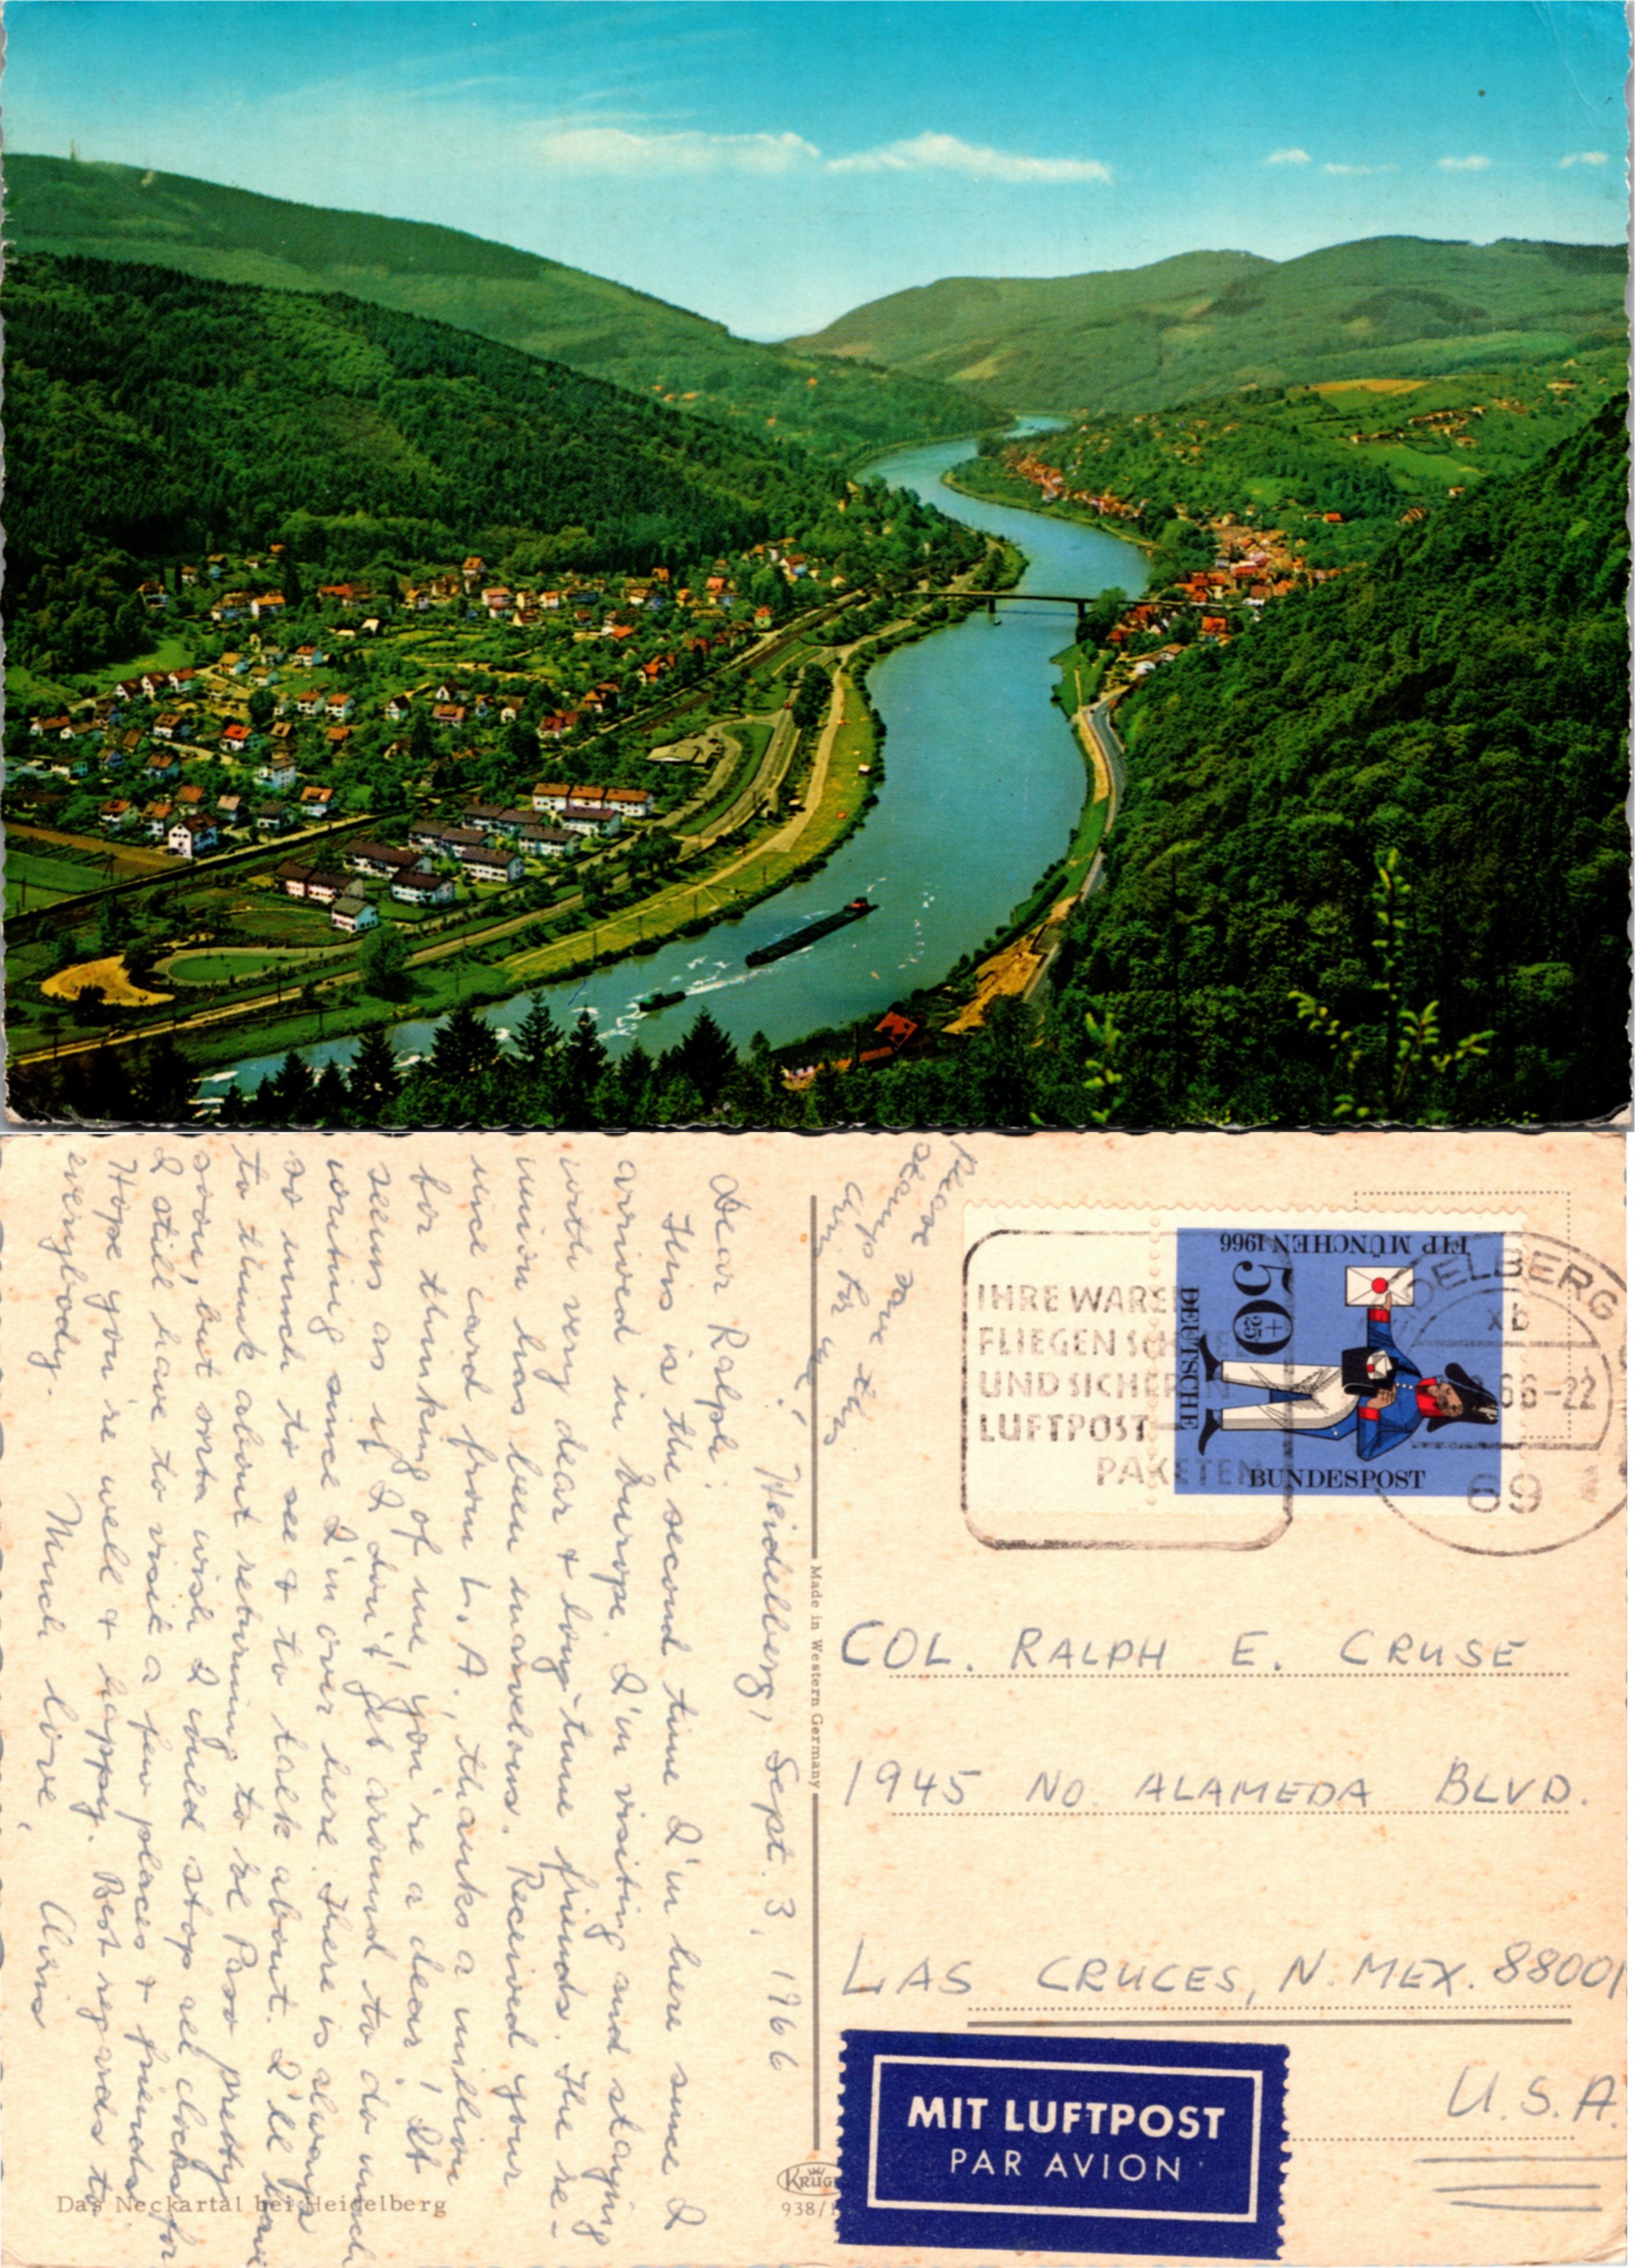 Please
stamp save this
for me!
Heidelberg, Sept. 3, 1966
Dear Ralph:
This is the second time I'm here since I
arrived in Europe. I'm visiting and staying
with very dear & long-time friends. The re-
union has been marvelous. Received your
nice card from L. A., thanks a million
for thinking of me, you're a dear! It
seems as if I don't get around to do much
writing since I'm over here. There is always
so much to see & to talk about. I'll have
to think about returning to El Paso pretty
soon, but sorta wish I could stop all clocks for
I still have to visit a few places & friends.
Hope you're well & happy. Best regards to
everybody.
Much love,
Avis
Das Neckartal bei Heidelberg
Made in Western Germany
KRÜG
938/1
IHRE WAREN
FLIEGEN SCHNELL
UND SICHER IN
LUFTPOST-
PAKETEN
FIP MÜNCHEN 1966
50
+
25
DEUTSCHE
BUNDESPOST
HEIDELBERG
xb
66-22
69
COL. RALPH E. CRUSE
1945 NO. ALAMEDA BLVD.
LAS CRUCES, N. MEX. 88001
U.S.A.
MIT LUFTPOST
PAR AVION